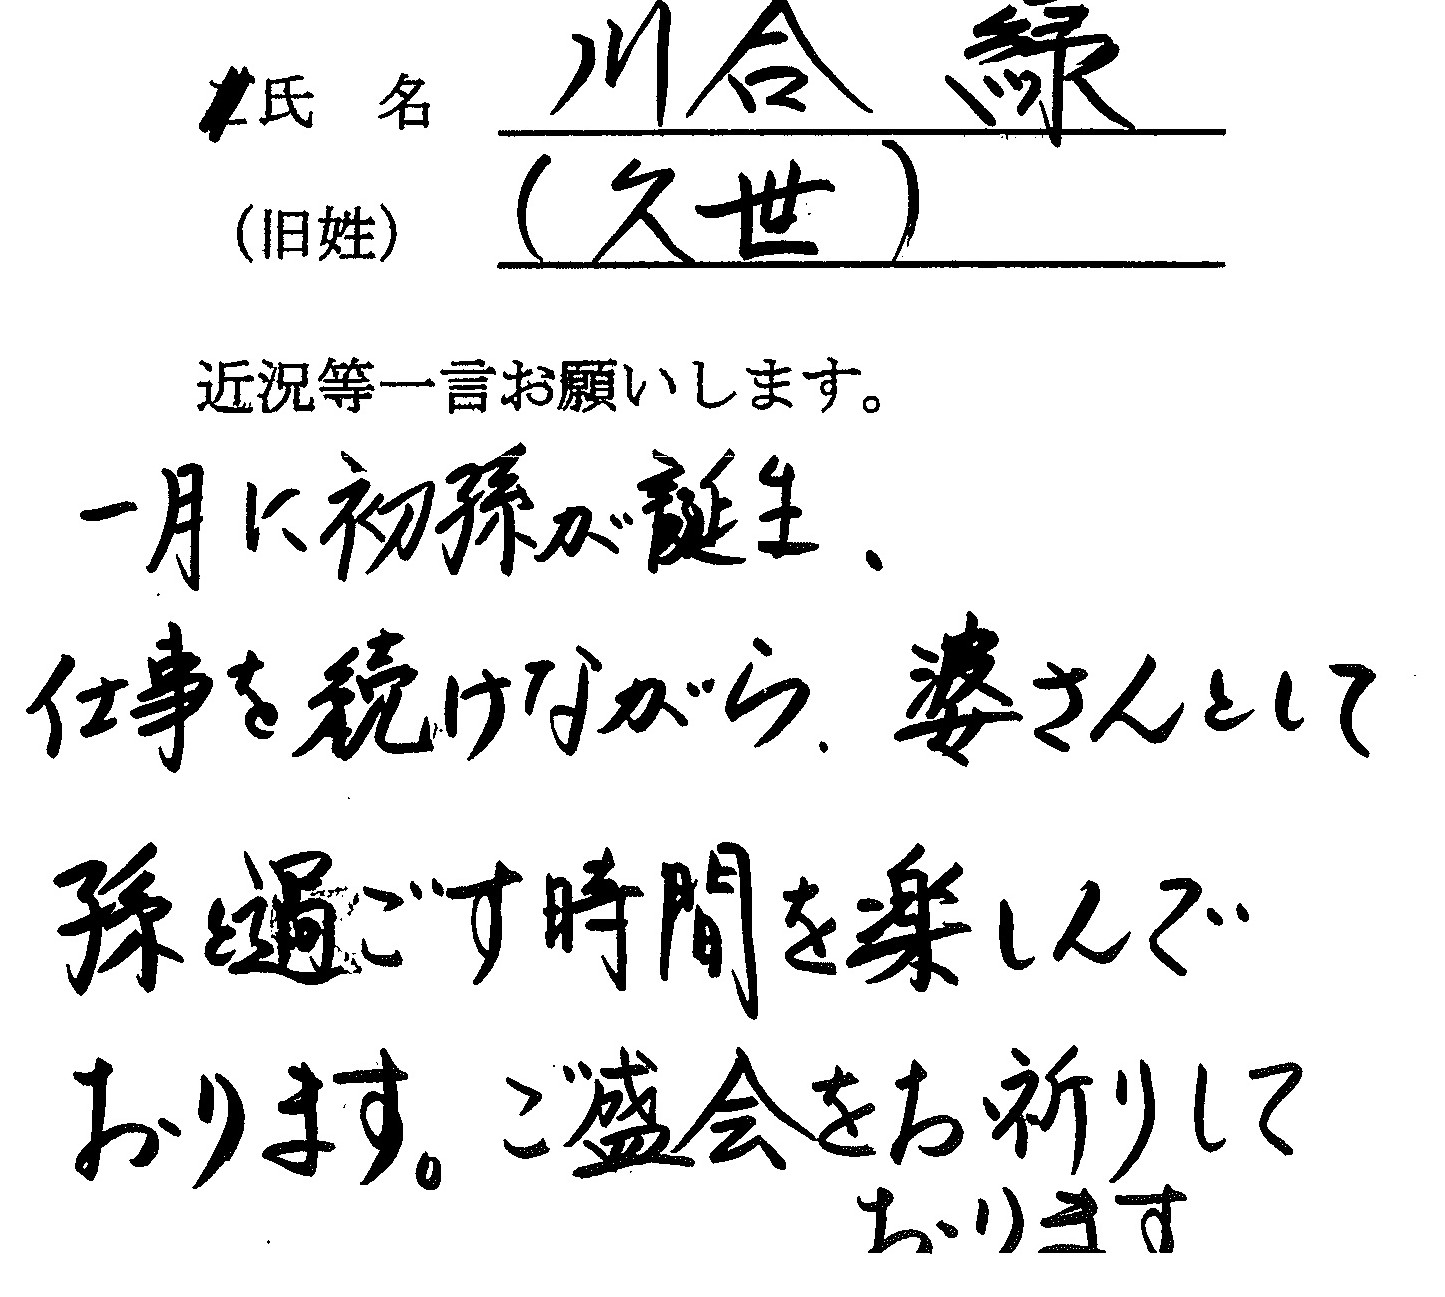 氏 名 川合 緑
(旧姓) (久世)
近況等一言お願いします。
一月に初孫が誕生、
仕事を続けながら、婆さんとして
孫と過ごす時間を楽しんで
おります。ご盛会をお祈りして
おります